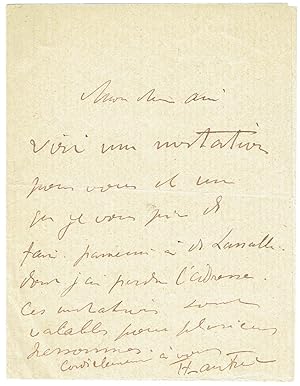 Mon cher ami
voici une invitation
pour vous et une
que je vous prie de
faire parvenir à de Lassalle
dont j'ai perdu l'adresse.
Ces invitations sont
valables pour plusieurs
personnes.
Cordialement à vous